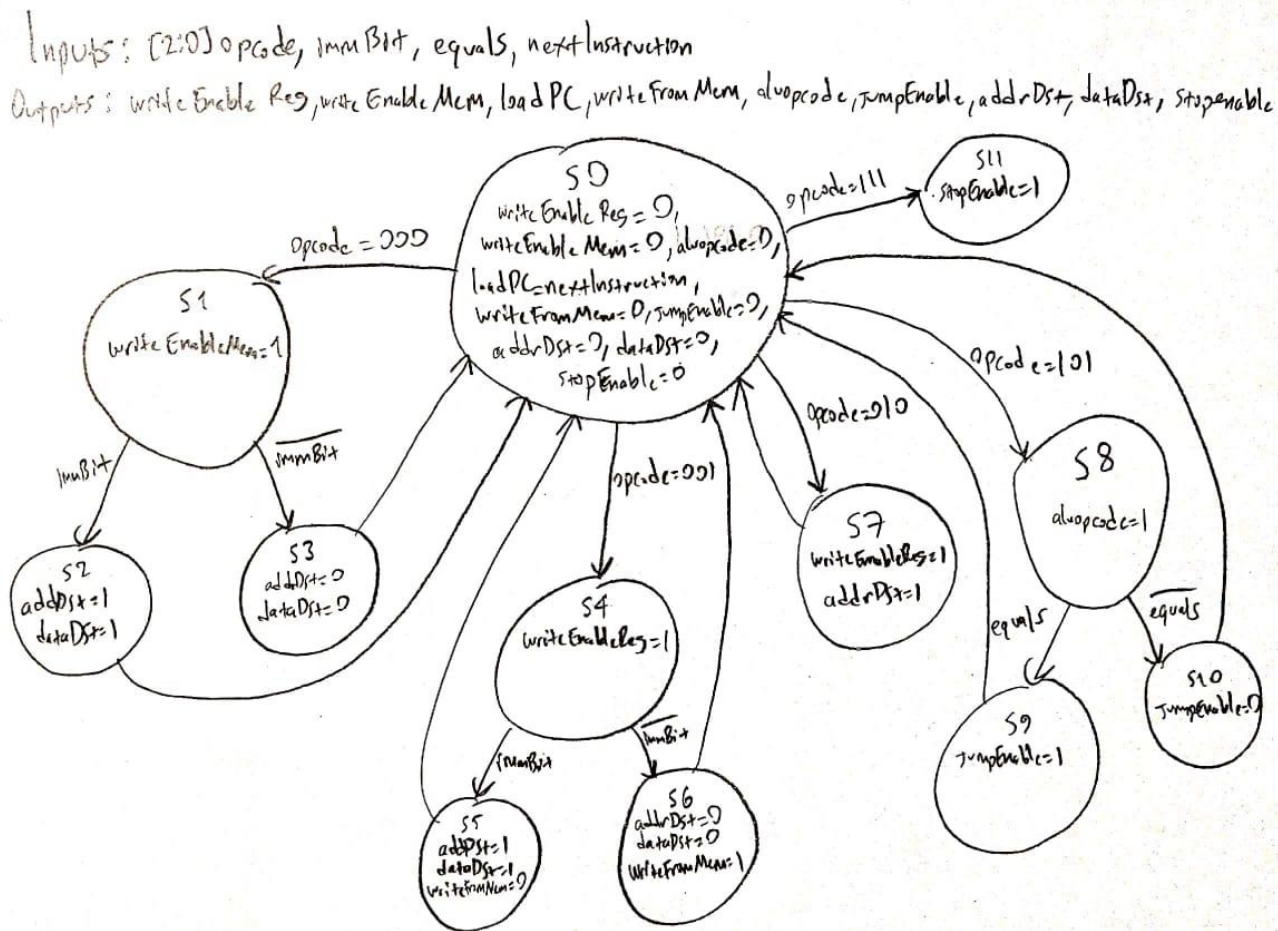 Inputs: [2:0] opcode, immBit, equals, nextInstruction
Outputs: writeEnable Reg, write Enable Mem, loadPC, writeFromMem, aluopcode, jumpEnable, addrDst, dataDst, stopenable
S0
writeEnable Reg = 0,
writeEnable Mem = 0, aluopcode=0,
loadPC=nextInstruction,
writeFromMem=0, jumpEnable=0,
addrDst=0, dataDst=0,
stopEnable=0
opcode=111
S11
stopEnable=1
opcode = 000
S1
writeEnableMem=1
immBit
immBit
S2
addDst=1
dataDst=1
S3
addDst=0
dataDst=0
opcode=001
S4
writeEnableReg=1
immBit
immBit
S5
addDst=1
dataDst=1
writeFromMem=0
S6
addrDst=0
dataDst=0
writeFromMem=1
opcode=010
S7
writeEnableReg=1
addrDst=1
opcode=101
S8
aluopcode=1
equals
equals
S9
jumpEnable=1
S10
jumpEnable=0